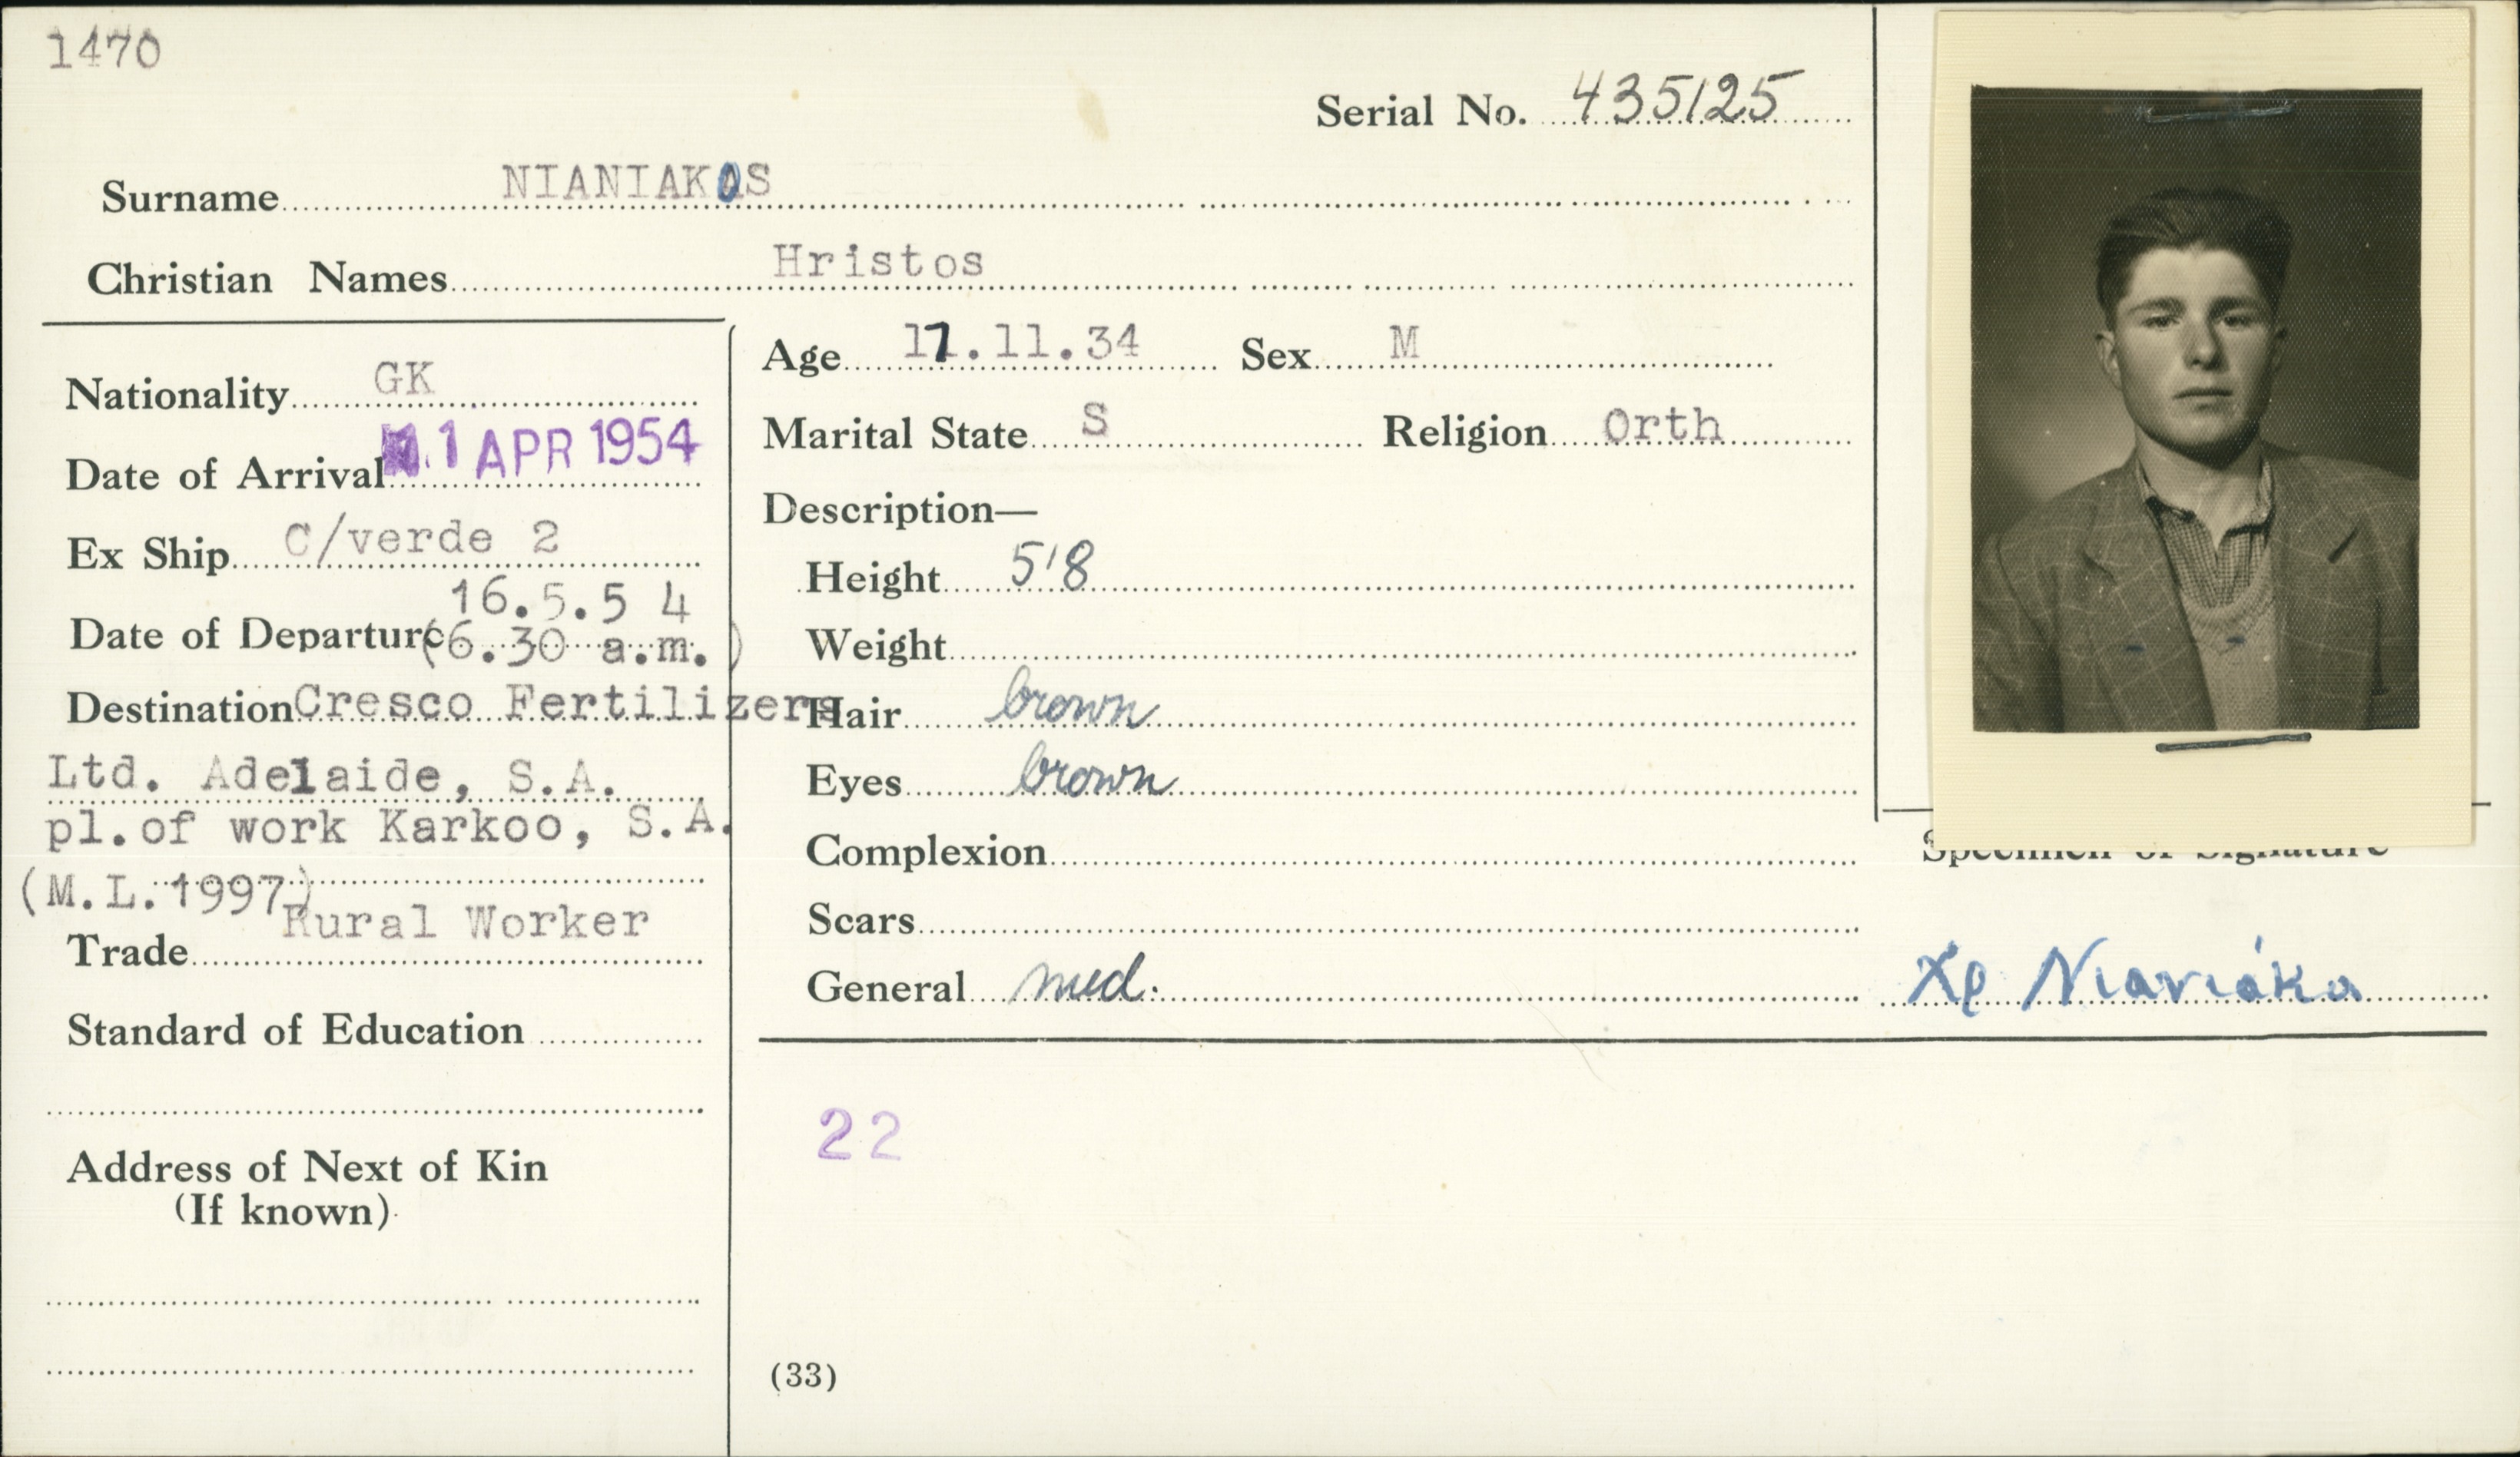 1470
Serial No. 435125
Surname NIANIAKOS
Christian Names Hristos
Nationality GK
Date of Arrival 1 APR 1954
Ex Ship C/verde 2
Date of Departure 16.5.5 4
(6.30 a.m.)
Destination Cresco Fertilizers
Ltd. Adelaide, S.A.
pl.of work Karkoo, S.A.
(M.L.1997)
Trade Rural Worker
Standard of Education
Address of Next of Kin
(If known)
Age 17.11.34 Sex M
Marital State S Religion Orth
Description—
Height 5'8
Weight
Hair brown
Eyes brown
Complexion
Scars
General med.
22
(33)
Specimen of Signature
Χρ Νιανιάκα